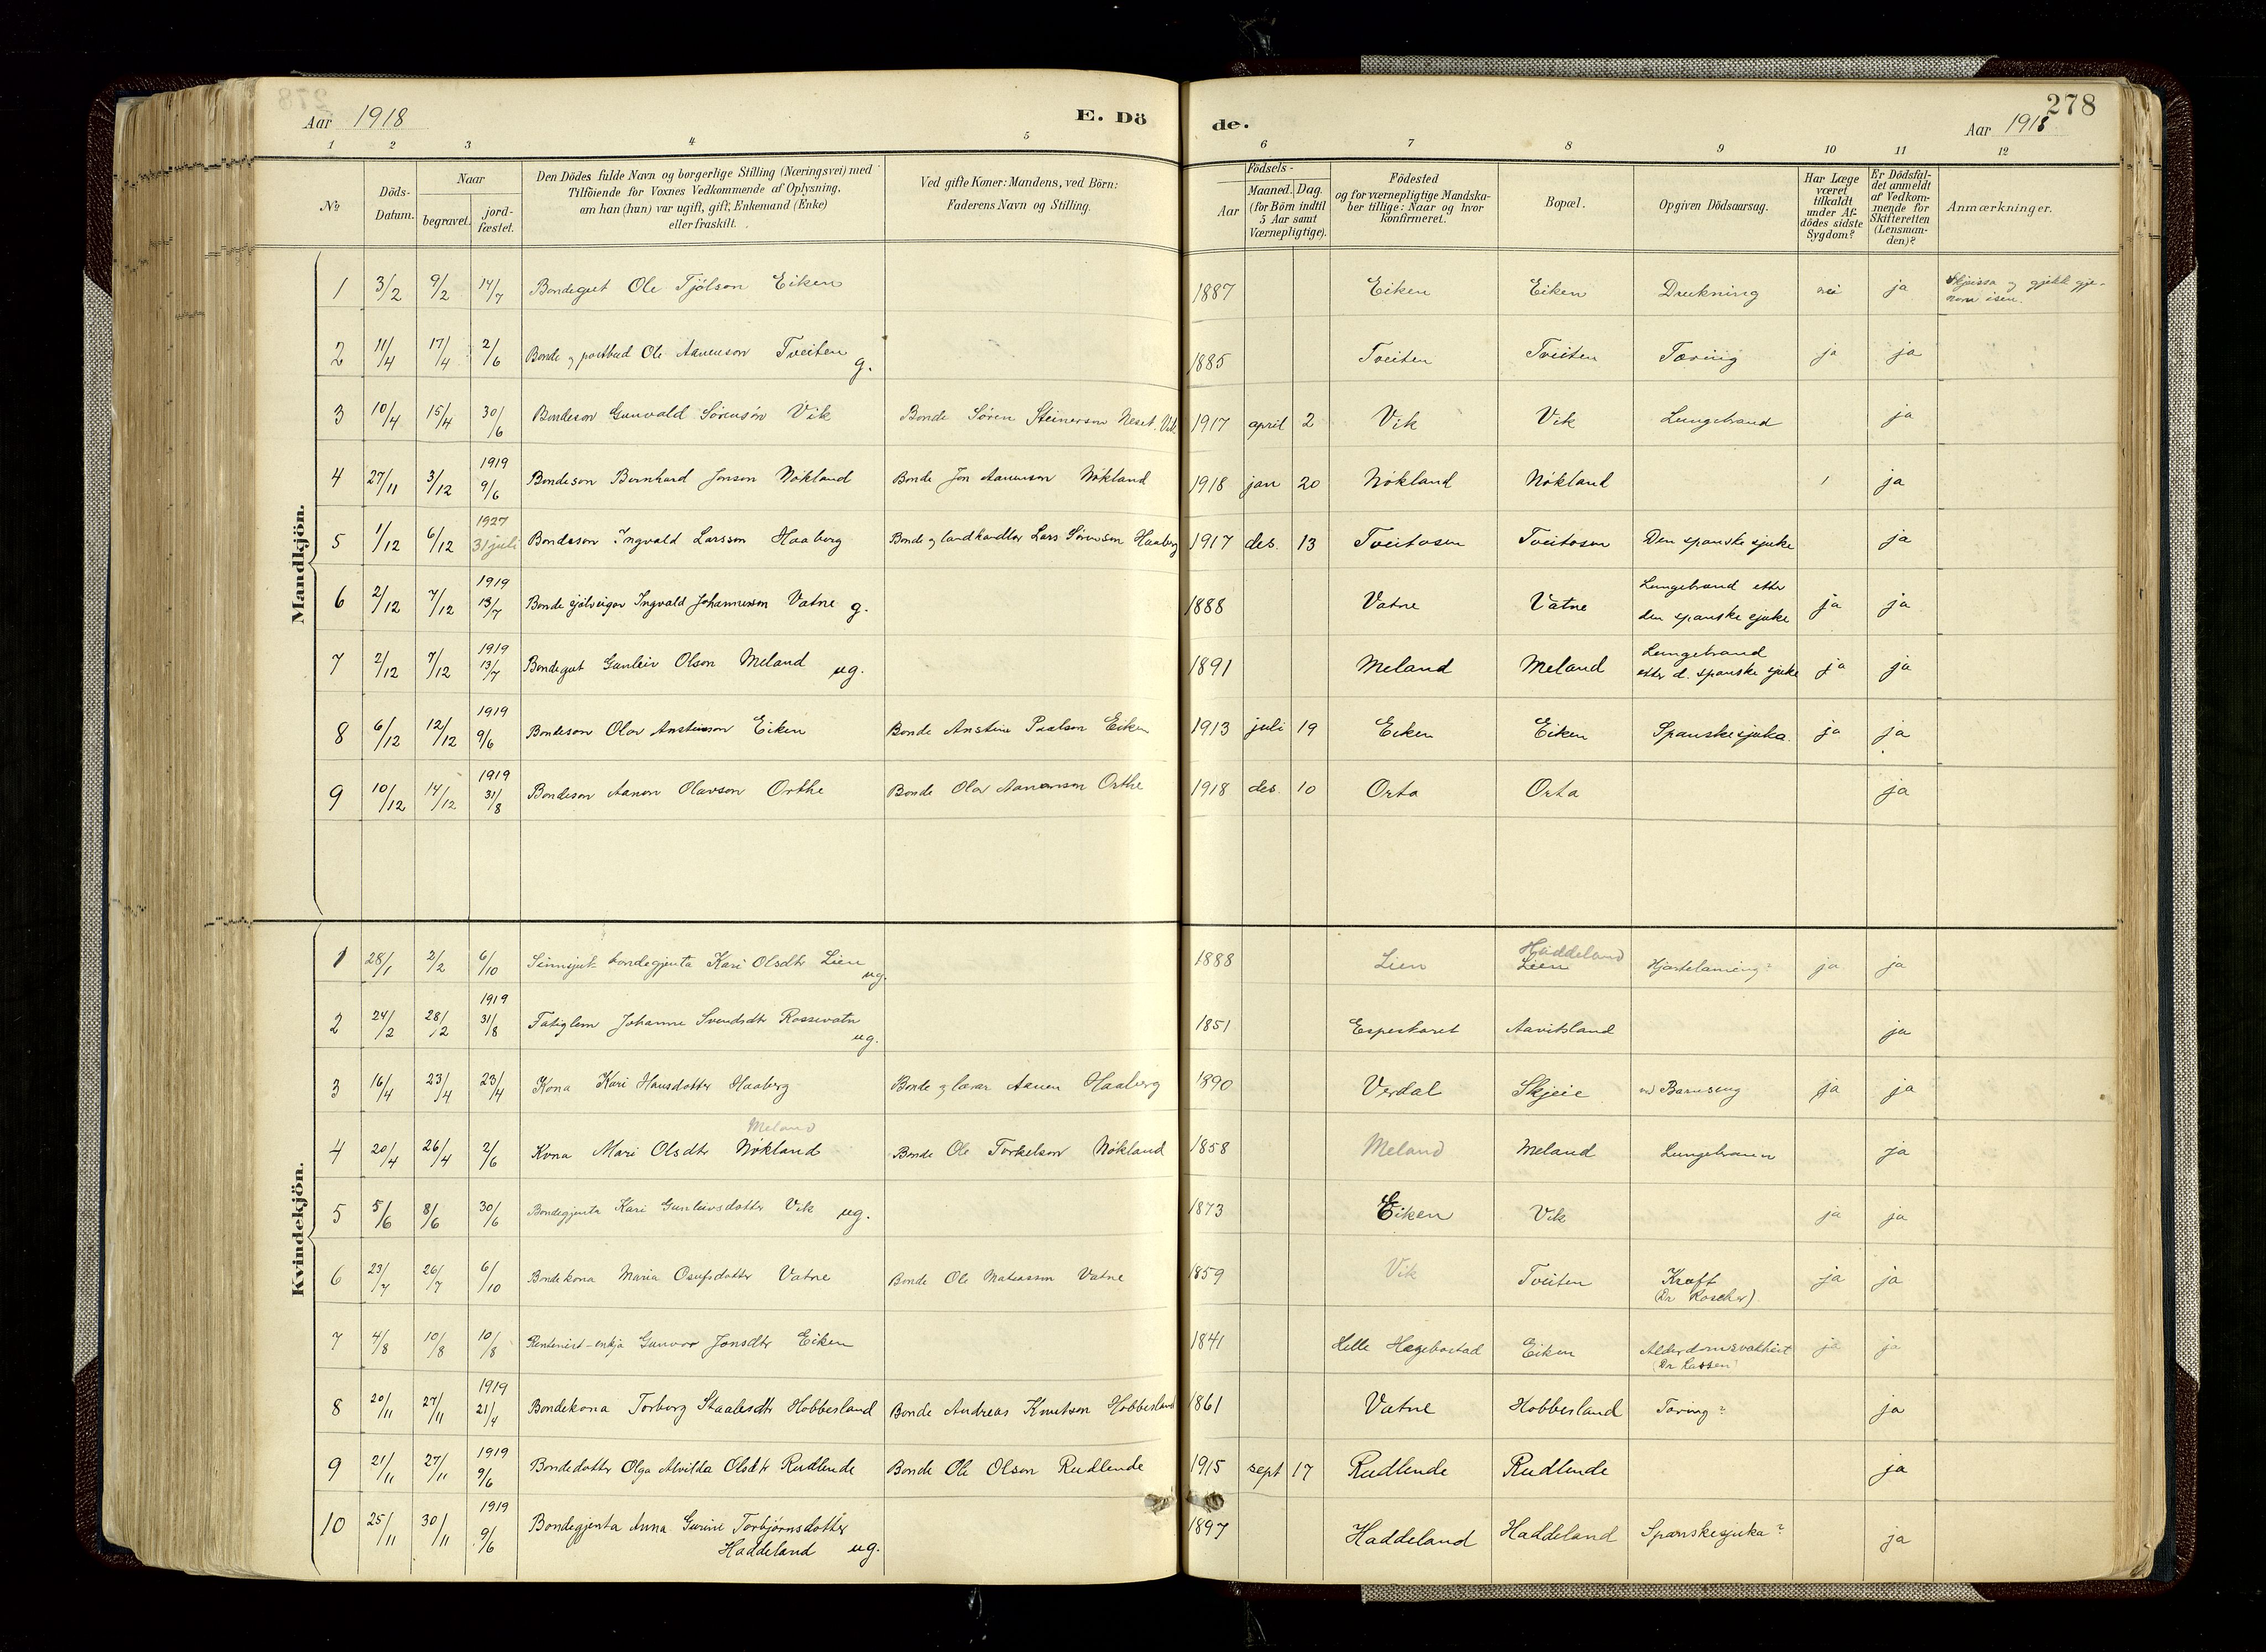 278
Aar 1918 E. Dö de. Aar 1918
1 2 3 4 5 6 7 8 9 10 11 12
№
Döds-Datum.
Naar
begravet.
jord-fæstet.
Den Dödes fulde Navn og borgerlige Stilling (Næringsvei) med
Tilföiende for Voxnes Vedkommende af Oplysning,
om han (hun) var ugift, gift, Enkemand (Enke)
eller fraskilt.
Ved gifte Koner: Mandens, ved Börn:
Faderens Navn og Stilling.
Födsels-
Aar
Maaned. Dag.
(for Börn indtil
5 Aar samt
Værnepligtige).
Födested
og for værnepligtige Mandska-
ber tillige: Naar og hvor
konfirmeret.
Bopæl.
Opgiven Dödsaarsag.
Har Læge
været
tilkaldt
under Af-
dödes sidste
Sygdom?
Er Dödsfal-
det anmeldt
af Vedkom-
mende for
Skifteretten
(Lensman-
den)?
Anmærkninger.
Mandkjön.
1 3/2 9/2 14/7 Bondegut Ole Tjölson Eiken 1887 Eiken Eiken Drukning nei ja Skjeissa og gjekk gje-
nom isen.
2 11/4 17/4 2/6 Bonde og postbud Ole Aanenson Tveiten g. 1885 Tveiten Tveiten Tæring ja ja
3 10/4 15/4 30/6 Bondeson Gunvald Sörenson Vik Bonde Sören Steinerson Neset. Vik 1917 april 2 Vik Vik Lungebrand ja
1919
4 27/11 3/12 9/6 Bondeson Bernhard Jonson Nökland Bonde Jon Aanenson Nökland 1918 jan 20 Nökland Nökland ja
1927
5 1/12 6/12 31 juli Bondeson Ingvald Larsson Haaberg Bonde og landhandlar Lars Sörenson Haaberg 1917 des. 13 Tveitosen Tveitosen Den spanske sjuke ja
1919
6 2/12 7/12 13/7 Bonde sjölveigar Ingvald Johannesson Vatne g. 1888 Vatne Vatne Lungebrand etter
den spanske sjuke ja ja
1919
7 2/12 7/12 13/7 Bondegut Gunleiv Olson Meland ug. 1891 Meland Meland Lungebrand
etter d. spanske sjuke ja ja
1919
8 6/12 12/12 9/6 Bondeson Olav Ansteinson Eiken Bonde Anstein Paalson Eiken 1913 juli 19 Eiken Eiken Spanskesjuka. ja ja
1919
9 10/12 14/12 31/8 Bondeson Aanen Olavson Orthe Bonde Olav Aanenson Orthe 1918 des. 10 Orta Orta ja
Kvindekjön.
Haddeland
1 28/1 2/2 6/10 Sinnsjuk bondegjenta Kari Olsdtr Lien ug. 1888 Lien Lien ja ja
1919
2 24/2 28/2 31/8 Fatiglem Johanne Svendsdtr Rossevatn ug. 1851 Espeskaret Aavitsland ja
3 16/4 23/4 23/4 Kona Kari Hansdotter Haaberg Bonde og lærar Aanen Haaberg 1890 Verdal Skjeie Barnseng ja ja
Meland
4 20/4 26/4 2/6 Kona Mari Olsdtr Nökland Bonde Ole Torkelson Nökland 1858 Meland Meland ja
5 5/6 8/6 30/6 Bondegjenta Kari Gunleivsdotter Vik ug. 1873 Eiken Vik ja ja
6 23/7 26/7 6/10 Bondekona Maria Osufsdotter Vatne Bonde Ole Vatne 1859 Vik Tveiten Kræft ja ja
(Dr Roscher).
7 4/8 10/8 10/8 Rentenist-enkja Gunvor Jonsdtr Eiken 1841 Helle Hægebostad Eiken Alderdomsvakheit ja ja
(Dr Lassen)
1919
8 20/11 27/11 21/4 Bondekona Torborg Staalesdtr Hobbesland Bonde Andreas Knutson Hobbesland 1861 Vatne Hobbesland Tæring? ja
1919
9 21/11 27/11 9/6 Bondedotter Olga Alvilda Olsdtr Rudlende Bonde Ole Olson Rudlende 1915 sept 17 Rudlende Rudlende ja
1919
10 25/11 30/11 9/6 Bondegjenta Anna Gurine Torbjörnsdotter
Haddeland ug. 1897 Haddeland Haddeland Spanskesjuka? ja